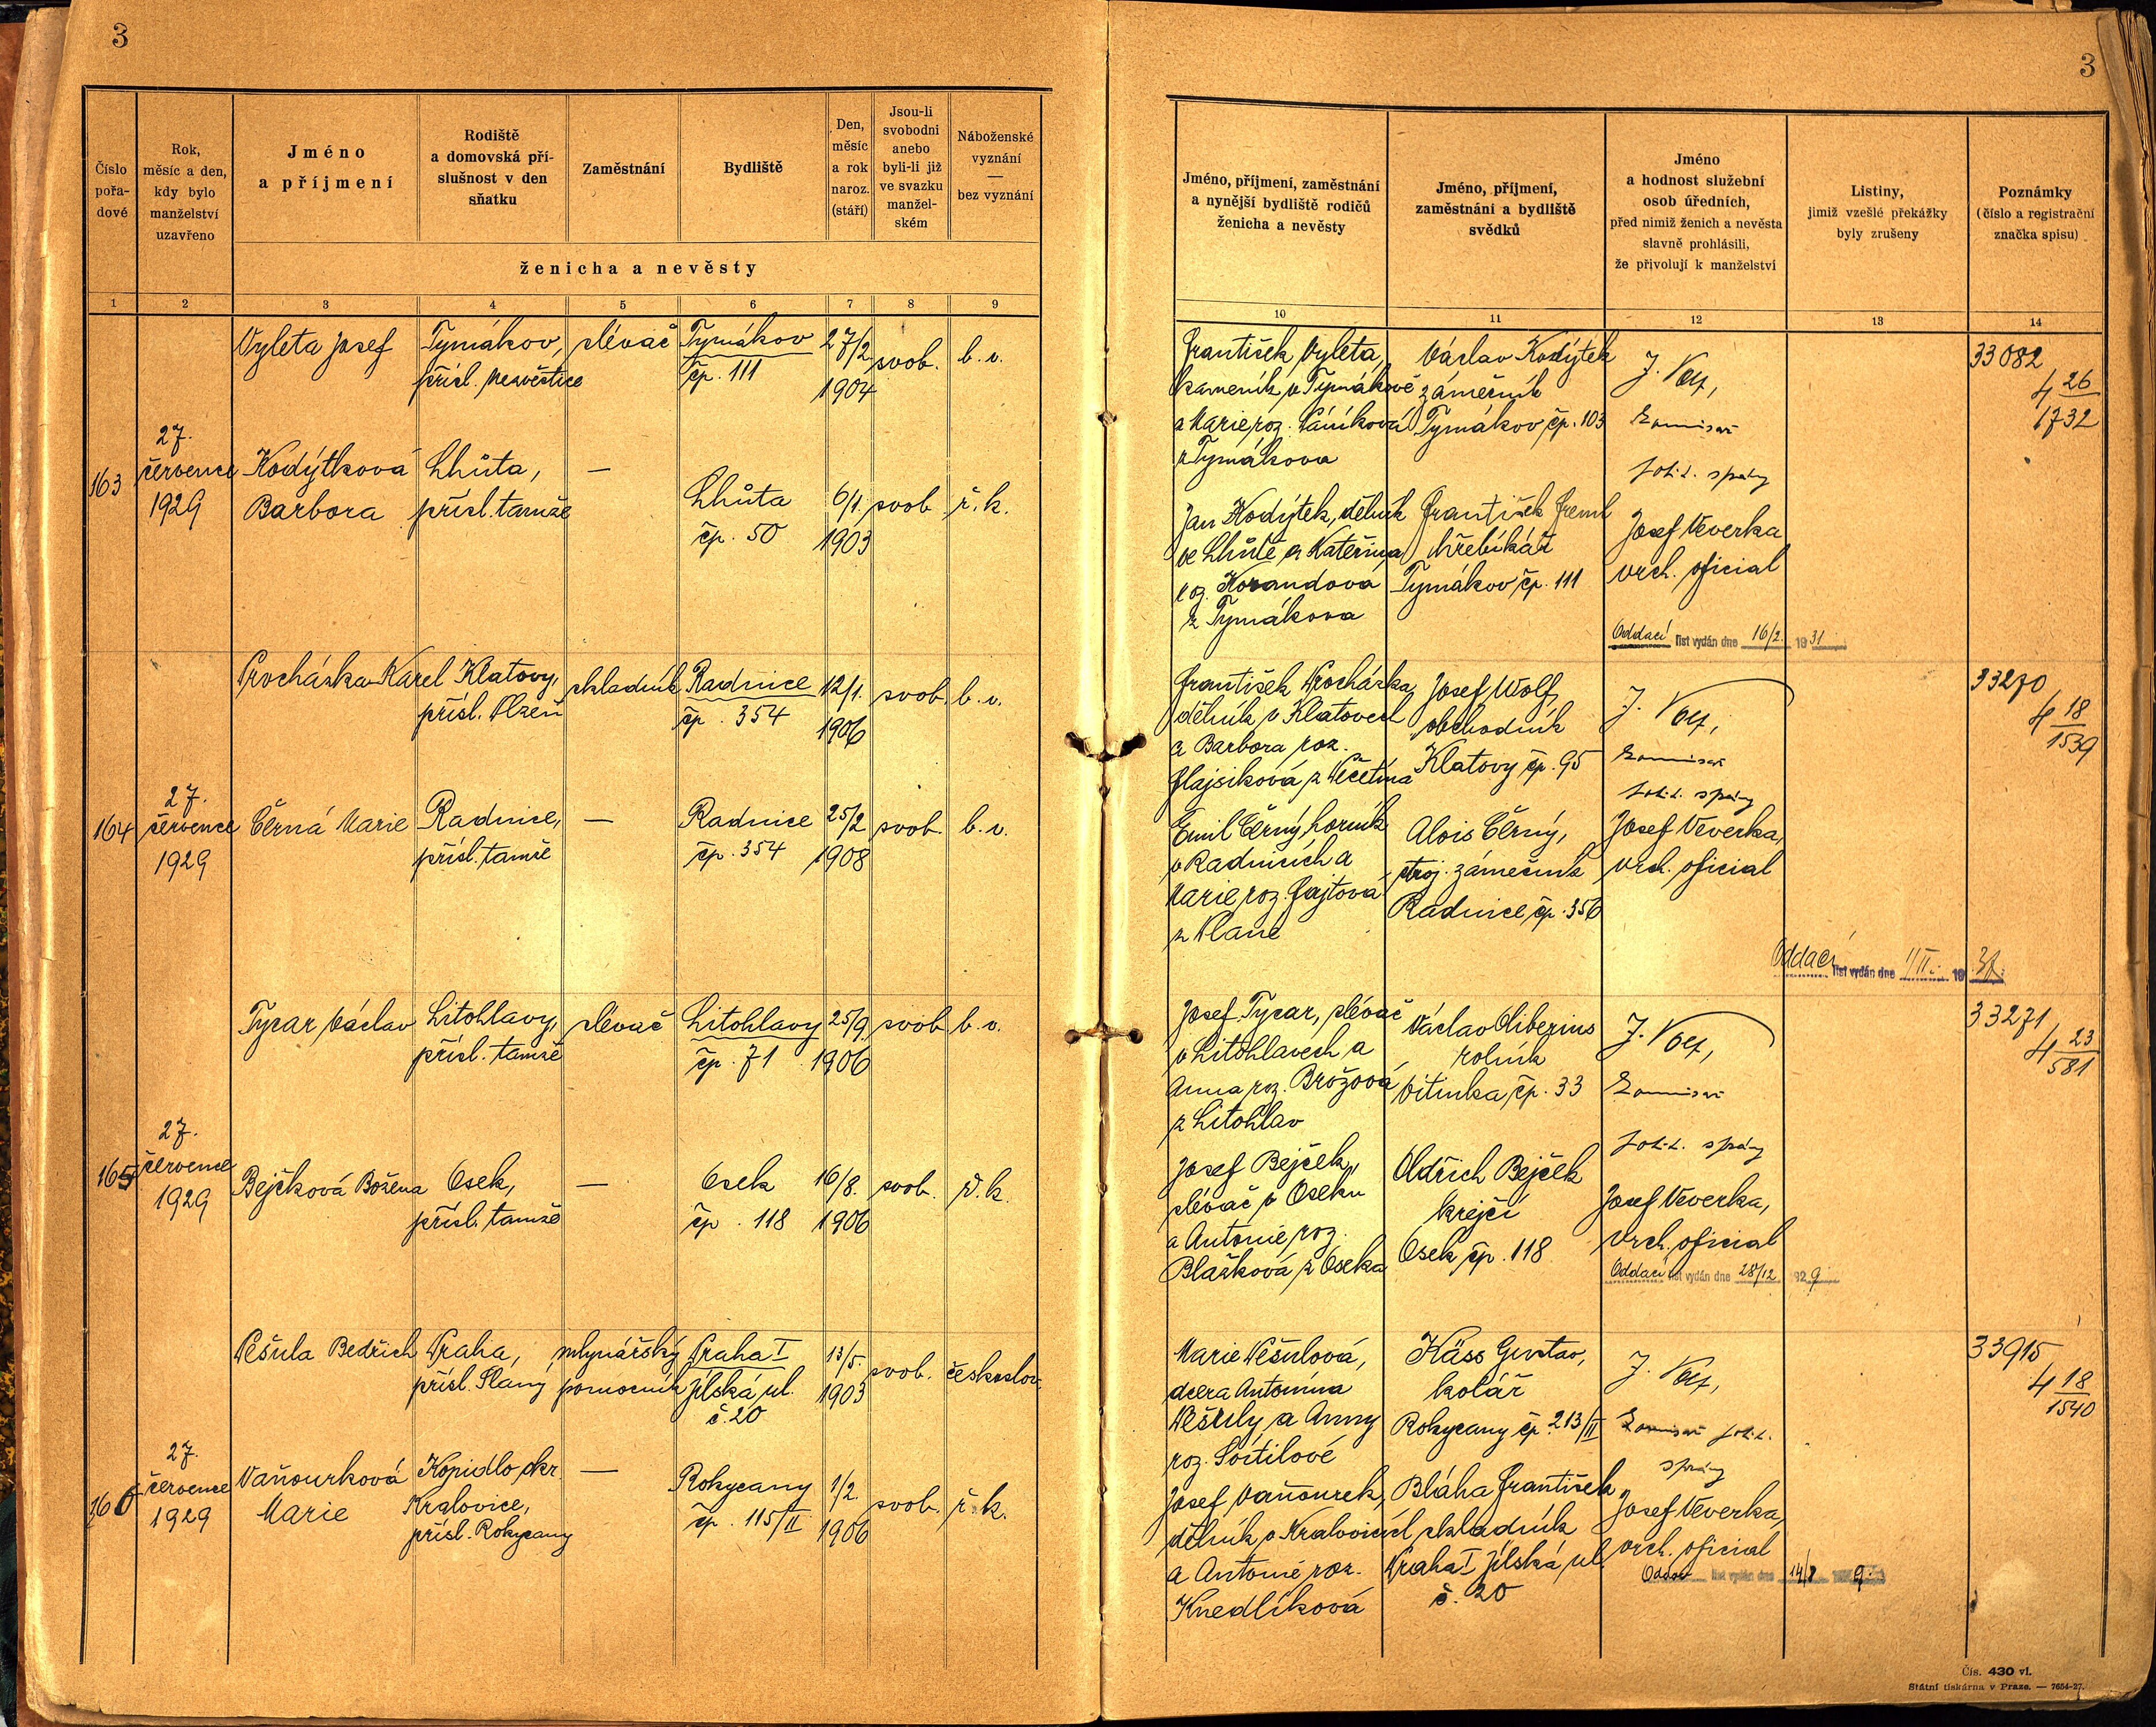 3
3
Číslo
pořa-
dové
Rok,
měsíc a den,
kdy bylo
manželství
uzavřeno
Jméno
a příjmení
Rodiště
a domovská pří-
slušnost v den
sňatku
Zaměstnání
Bydliště
Den,
měsíc
a rok
naroz.
(stáří)
Jsou-li
svobodni
anebo
byli-li již
ve svazku
manžel-
ském
Náboženské
vyznání
—
bez vyznání
ženicha a nevěsty
Jméno, příjmení, zaměstnání
a nynější bydliště rodičů
ženicha a nevěsty
Jméno, příjmení,
zaměstnání a bydliště
svědků
Jméno
a hodnost služební
osob úředních,
před nimiž ženich a nevěsta
slavně prohlásili,
že přivolují k manželství
Listiny,
jimiž vzešlé překážky
byly zrušeny
Poznámky
(číslo a registrační
značka spisu)
1 2 3 4 5 6 7 8 9
10 11 12 13 14
163
27.
července
1929
Vyleta Josef
Tymákov,
přísl. Nezvěstice
slévač
Tymákov
čp. 111
27/2
1904
svob.
b. v.
Kodýtková
Barbora
Lhůta,
přísl. tamže
—
Lhůta
čp. 50
6/1.
1903
svob.
ř. k.
František Vyleta,
kameník v Tymákově
a Marie roz.
z Tymákova
Jan Kodýtek, dělník
ve Lhůtě a Kateřina
roz. Korandová
z Tymákova
Václav Kodýtek
zámečník
Tymákov čp. 103
František
hřebíkář
Tymákov čp. 111
J.
komisař
polit. správy
Josef Veverka
vrch. oficial
Oddací list vydán dne 16/2. 1931
33082
4 26
1732
164
27.
července
1929
Procházka Karel
Klatovy,
přísl. Plzeň
skladník
Radnice
čp. 354
12/1.
1906
svob.
b. v.
Černá Marie
Radnice,
přísl. tamže
—
Radnice
čp. 354
25/2
1908
svob.
b. v.
František Procházka
dělník v Klatovech
a Barbora roz.
Hajsiková z
Emil Černý, horník
v Radnicích a
Marie roz. Fajtová
z Plané
Josef Wolf,
obchodník
Klatovy čp. 95
Alois Černý,
stroj. zámečník
Radnice čp. 356
J.
komisař
polit. správy
Josef Veverka,
vrch. oficial
Oddací list vydán dne 1/II. 19
33270
4 18
1539
165
27.
července
1929
Tycar Václav
Litohlavy,
přísl. tamže
slévač
Litohlavy
čp. 71
25/9.
1906
svob.
b. v.
Bejčková Božena
Osek,
přísl. tamže
—
Osek
čp. 118
16/8.
1906
svob.
ř. k.
Josef Tycar, slévač
v Litohlavech a
Anna roz. Brožová
z Litohlav
Josef Bejček,
slévač v Oseku
a Antonie roz.
Blažková z Oseka
Václav Oliberius
rolník
Vitinka čp. 33
Oldřich Bejček
krejčí
Osek čp. 118
J.
komisař
polit. správy
Josef Veverka,
vrch. oficial
Oddací list vydán dne 28/12 1929
33271
4 23
581
166
27.
července
1929
Pešula Bedřich
Praha,
přísl. Slaný
mlynářský
pomocník
Praha I
Jilská ul.
č. 20
13/5.
1903
svob.
českoslov.
Vaňourková
Marie
Kopidlo okr.
Kralovice,
přísl. Rokycany
—
Rokycany
čp. 115/II
1/2.
1906
svob.
ř. k.
Marie Pešulová,
dcera Antonína
Pešuly a Anny
roz.
Josef Vaňourek,
dělník v Kralovicích
a Antonie roz.
Knedlíková
Käss Gustav,
kolář
Rokycany čp. 213/II
Bláha František
skladník
Praha I Jilská ul.
č. 20
J.
komisař polit.
správy
Josef Veverka,
vrch. oficial
list vydán dne 14/8 9.
33915
4 18
1540
Čís. 430 vl.
Státní tiskárna v Praze. — 7654-27.